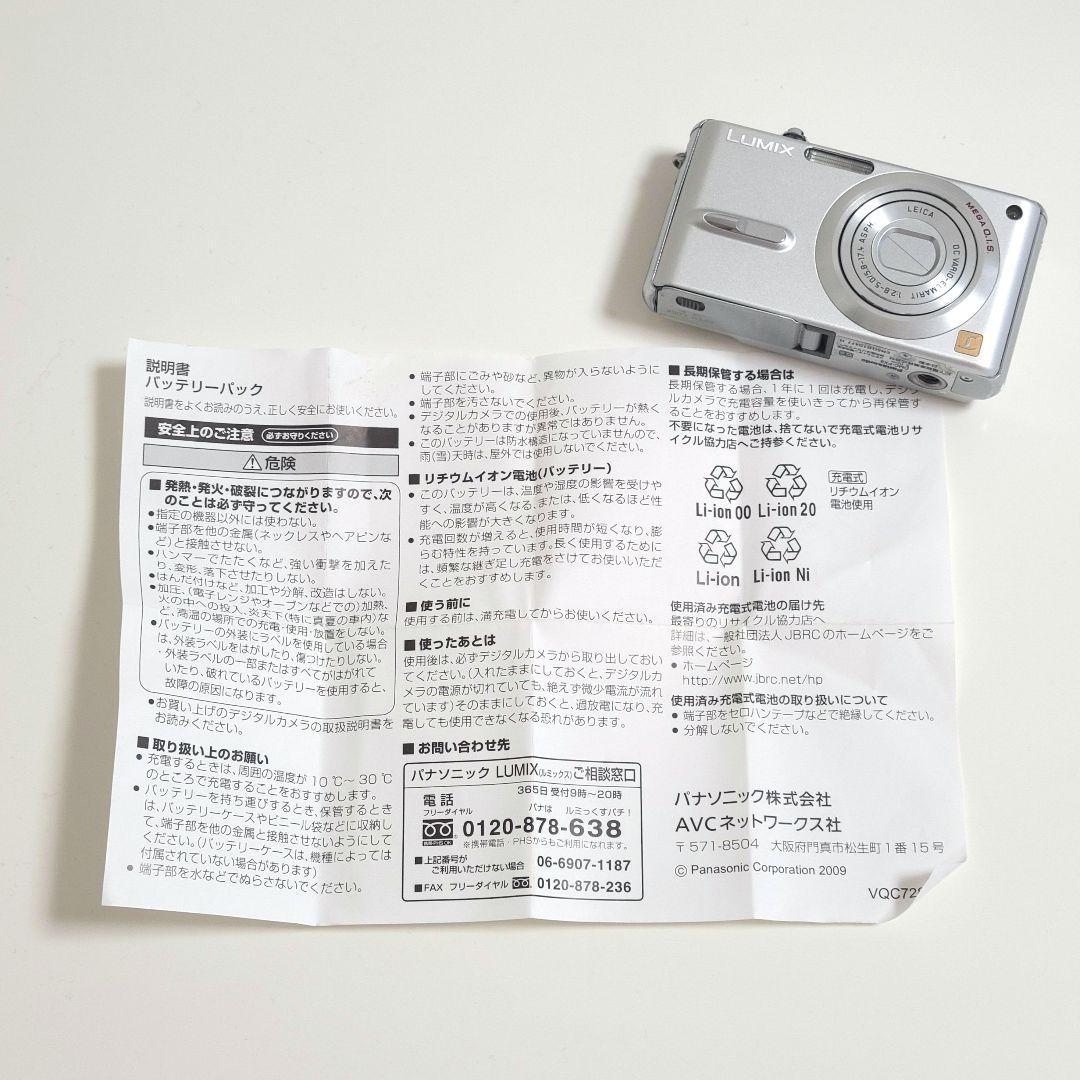 LUMIX
MEGA O.I.S.
LEICA
DC VARIO-ELMARIT
1:2.8-5.0/5.8-17.4 ASPH
説明書
バッテリーパック
説明書をよくお読みのうえ、正しく安全にお使いください。
安全上のご注意 必ずお守りください
危険
■ 発熱・発火・破裂につながりますので、次
のことは必ず守ってください。
●指定の機器以外には使わない。
●端子部を他の金属(ネックレスやヘアピンな
ど)と接触させない。
●ハンマーでたたくなど、強い衝撃を加えた
り、変形、落下させたりしない。
●はんだ付けなど、加工や分解、改造はしない。
●加圧、(電子レンジやオーブンなどでの)加熱、
火の中への投入、炎天下(特に真夏の車内)な
ど、高温の場所での充電・使用・放置をしない。
●バッテリーの外装にラベルを使用している場合
は、外装ラベルをはがしたり、傷つけたりしない。
・外装ラベルの一部またはすべてがはがれて
いたり、破れているバッテリーを使用すると、
故障の原因になります。
●お買い上げのデジタルカメラの取扱説明書を
お読みください。
■ 取り扱い上のお願い
● 充電するときは、周囲の温度が 10 ℃~ 30 ℃
のところで充電することをおすすめします。
● バッテリーを持ち運びするとき、保管するとき
は、バッテリーケースやビニール袋などに収納し
て、端子部を他の金属と接触しないようにして
ください。(バッテリーケースは、機種によっては
付属されていない場合があります)
● 端子部を水などでぬらさないでください。
● 端子部にごみや砂など、異物が入らないように
してください。
● 端子部を汚さないでください。
● デジタルカメラでの使用後、バッテリーが熱く
なることがありますが異常ではありません。
● このバッテリーは防水構造になっていませんので、
雨(雪)天時は、屋外では使用しないでください。
■ リチウムイオン電池(バッテリー)
● このバッテリーは、温度や湿度の影響を受けや
すく、温度が高くなる、または、低くなるほど性
能への影響が大きくなります。
● 充電回数が増えると、使用時間が短くなり、膨
らむ特性を持っています。長く使用するために
は、頻繁な継ぎ足し充電をさけてお使いいただ
くことをおすすめします。
■ 使う前に
使用する前は、満充電してからお使いください。
■ 使ったあとは
使用後は、必ずデジタルカメラから取り出しておい
てください。(入れたままにしておくと、デジタルカ
メラの電源が切れていても、絶えず微少電流が流れ
ています)そのままにしておくと、過放電になり、充
電しても使用できなくなる恐れがあります。
■ お問い合わせ先
パナソニック LUMIX(ルミックス)ご相談窓口
365日 受付9時~20時
電話
フリーダイヤル
パナは ルミっくすパチ!
0120-878-638
※携帯電話・PHSからもご利用になれます。
■ 上記番号が
ご利用いただけない場合 06-6907-1187
■FAX フリーダイヤル 0120-878-236
■ 長期保管する場合は
長期保管する場合、1年に1回は充電し、デジタ
ルカメラで充電容量を使いきってから再保管す
ることをおすすめします。
不要になった電池は、捨てないで充電式電池リサ
イクル協力店へご持参ください。
Li-ion 00 Li-ion 20
充電式
リチウムイオン
電池使用
Li-ion Li-ion Ni
使用済み充電式電池の届け先
最寄りのリサイクル協力店へ
詳細は、一般社団法人JBRCのホームページをご
参照ください。
● ホームページ
http://www.jbrc.net/hp
使用済み充電式電池の取り扱いについて
● 端子部をセロハンテープなどで絶縁してください。
● 分解しないでください。
パナソニック株式会社
AVCネットワークス社
〒571-8504 大阪府門真市松生町1番15号
© Panasonic Corporation 2009